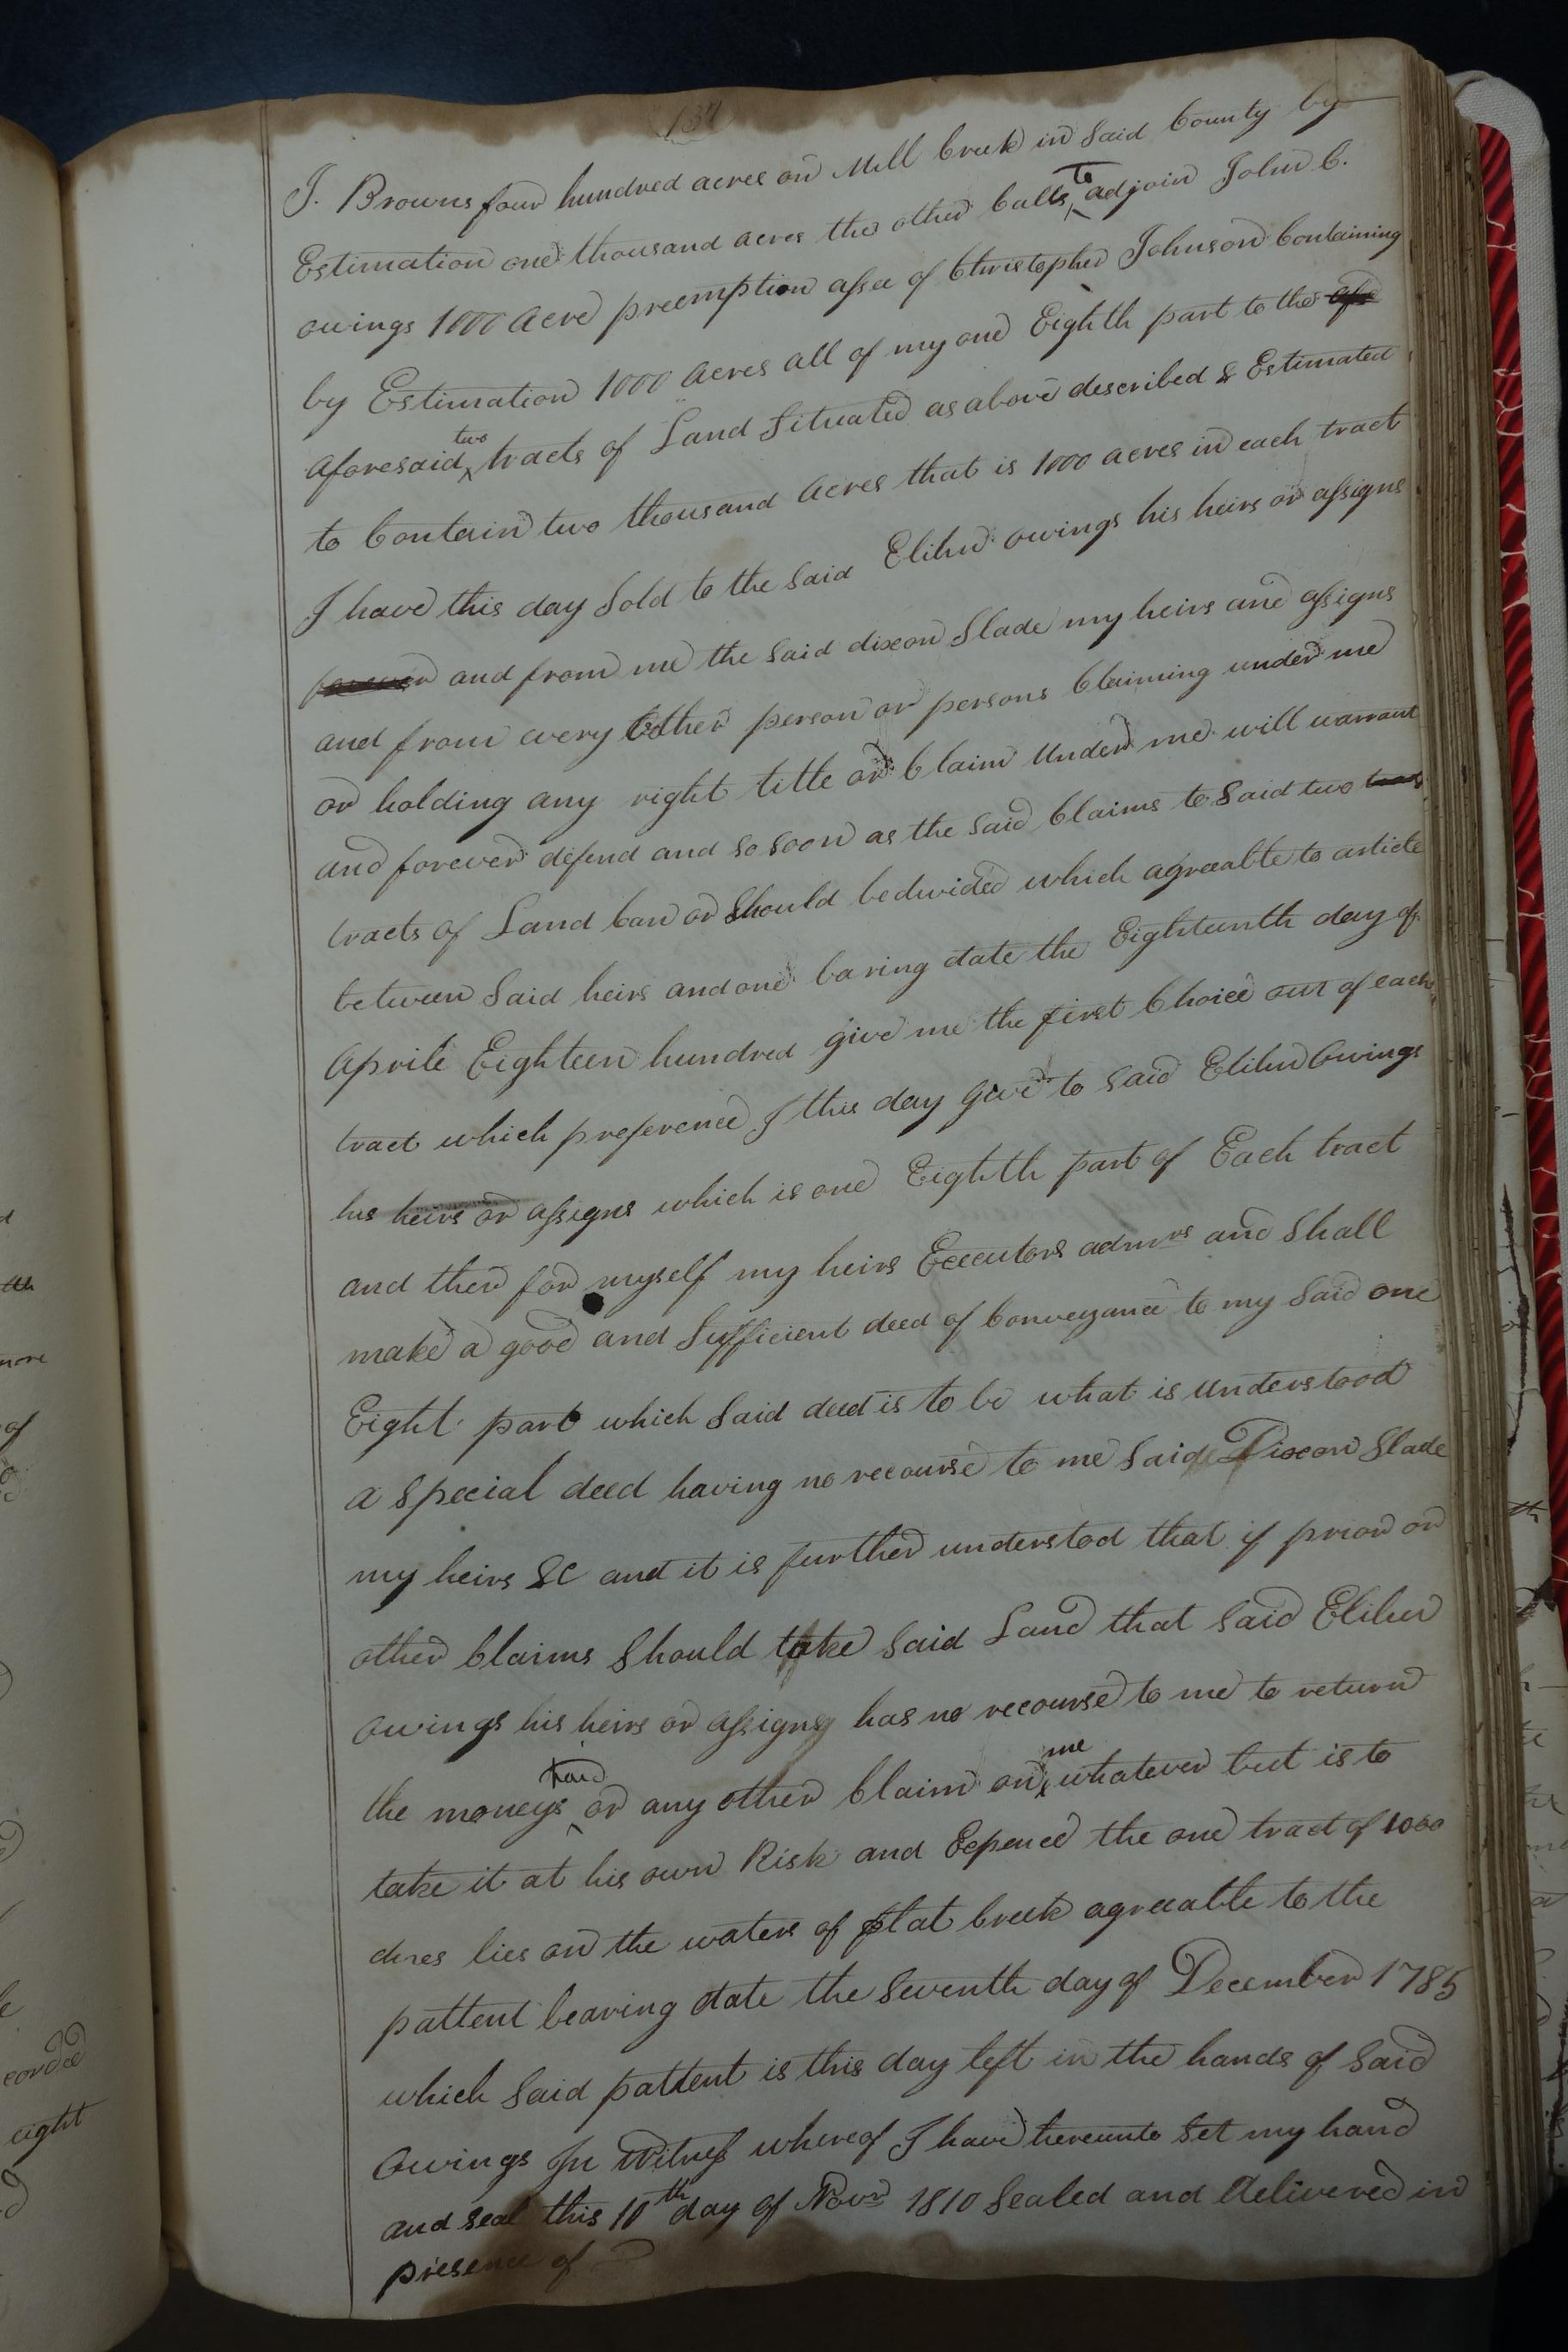 137
J. Browns four hundred acres on Mill Creek in Said County by
Estimation one thousand acres the other Calls to adjoin John C.
owings 1000 Acre preemption assee of Christopher Johnson Containing
by Estimation 1000 Acres all of my one Eighth part to the
aforesaid two tracts of Land Situated as above described & Estimated
to Contain two thousand Acres that is 1000 acres in each tract
I have this day Sold to the Said Elihu owings his heirs or assigns
forever and from me the Said dixon Slade my heirs and assigns
and from every other person or persons Claiming under me
or holding any right title or Claim Under me will warrant
and forever defend and so soon as the Said Claims to Said two
tracts of Land Can or Should be divided which agreeable to article
between Said heirs and one baring date the Eighteenth day of
Aprile Eighteen hundred give me the first Choice out of each
tract which preference I this day give to Said Elihu Owings
his heirs or assigns which is one Eighth part of Each tract
and then for myself my heirs Executors admrs and Shall
make a good and Sufficient deed of Conveyance to my Said one
Eight part which Said deed is to be what is understood
a special deed having no recourse to me Said Dixon Slade
my heirs &c and it is further understod that if prior or
other Claims Should take Said Land that Said Elihu
owings his heirs or assigns has no recourse to me to return
the moneys paid or any other Claim on me whatever but is to
take it at his own Risk and Expence the one tract of 1000
acres lies on the waters of flat Creek agreeable to the
pattent bearing date the Seventh day of December 1785
which Said pattent is this day left in the hands of Said
Owings In Witness whereof I have hereunto Set my hand
and seal this 10th day of Novr 1810 Sealed and delivered in
presence of